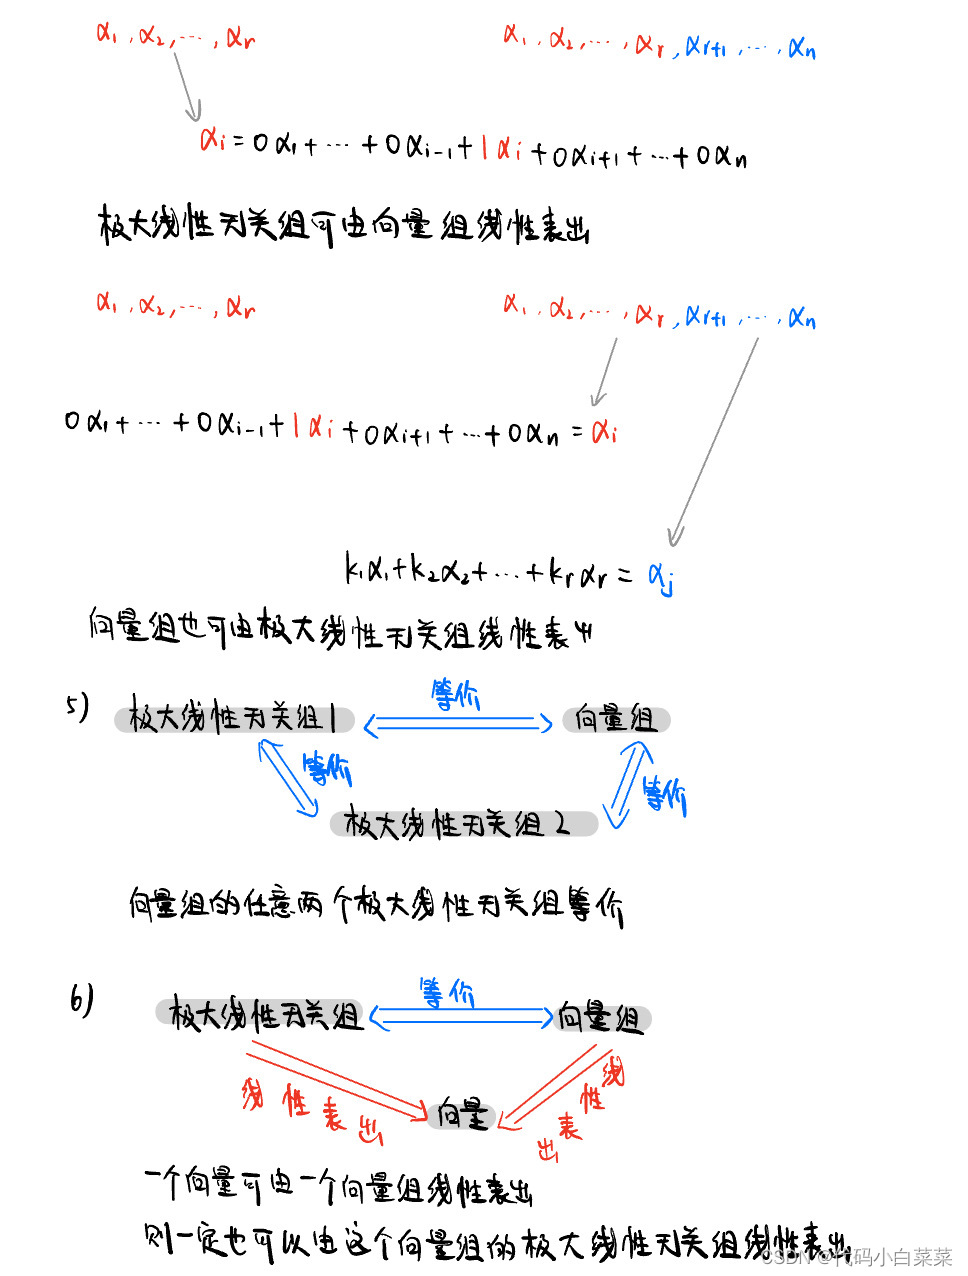 α₁, α₂, …, αᵣ α₁, α₂, …, αᵣ, αᵣ₊₁, …, αₙ
αᵢ = 0α₁ + … + 0αᵢ₋₁ + 1αᵢ + 0αᵢ₊₁ + … + 0αₙ
极大线性无关组可由向量组线性表出
α₁, α₂, …, αᵣ α₁, α₂, …, αᵣ, αᵣ₊₁, …, αₙ
0α₁ + … + 0αᵢ₋₁ + 1αᵢ + 0αᵢ₊₁ + … + 0αₙ = αᵢ
k₁α₁ + k₂α₂ + … + kᵣαᵣ = αⱼ
向量组也可由极大线性无关组线性表出
等价
5) 极大线性无关组1 向量组
等价 等价
极大线性无关组2
向量组的任意两个极大线性无关组等价
等价
6) 极大线性无关组 向量组
线性表出 线性表出
向量
一个向量可由一个向量组线性表出
则一定也可以由这个向量组的极大线性无关组线性表出
CSDN @代码小白菜菜